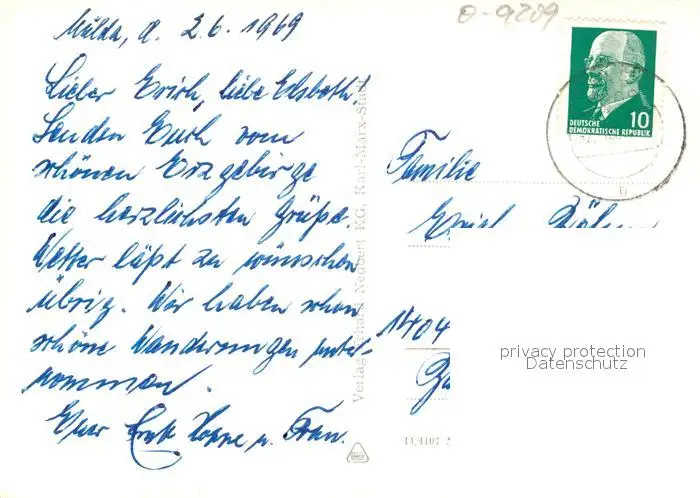 Mulda, d. 2.6.1969
Lieber Erich, liebe Elsbeth!
Senden Euch vom
schönen Erzgebirge
die herzlichsten Grüße.
Wetter läßt zu wünschen
übrig. Wir haben schon
schöne Wanderungen unter-
nommen.
Euer Ernst Hoppe u. Frau.
Verlag Erhard Neubert KG, Karl-Marx-Stadt
0-9209
10
DEUTSCHE
DEMOKRATISCHE REPUBLIK
b
Familie
Erich
1404
privacy protection
Datenschutz